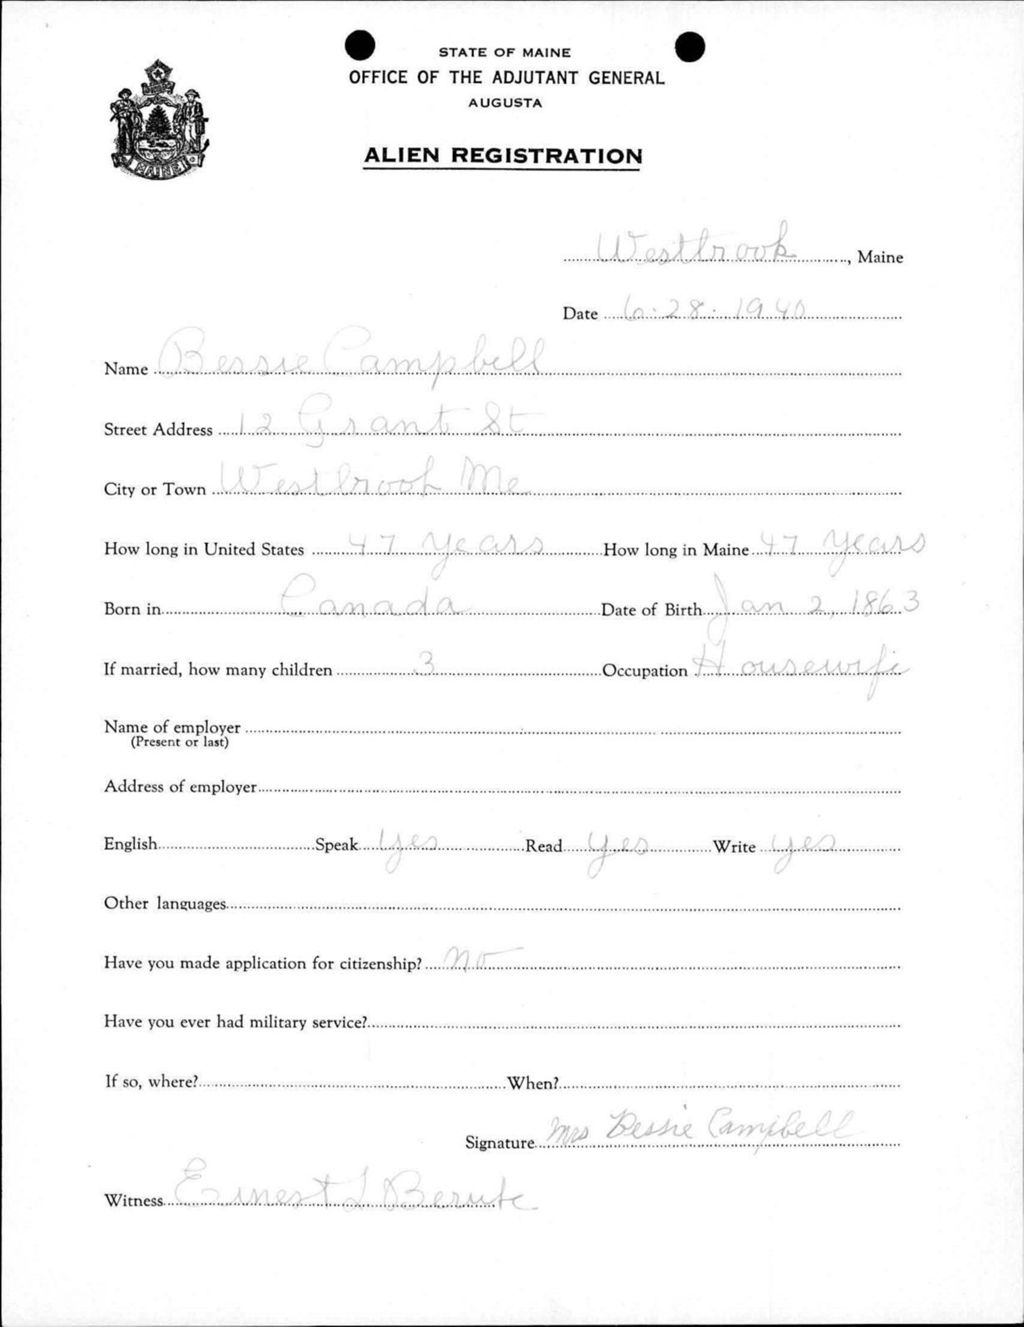 STATE OF MAINE
OFFICE OF THE ADJUTANT GENERAL
AUGUSTA
MAINE
ALIEN REGISTRATION
Westbrook, Maine
Date 6-28-1940
Name Bessie Campbell
Street Address 12 Grant St
City or Town Westbrook Me
How long in United States 47 years How long in Maine 47 years
Born in Canada Date of Birth Jan 2, 1863
If married, how many children 3 Occupation Housewife
Name of employer
(Present or last)
Address of employer
English Speak Yes Read Yes Write Yes
Other languages
Have you made application for citizenship? No
Have you ever had military service?
If so, where? When?
Signature Mrs Bessie Campbell
Witness Ernest L